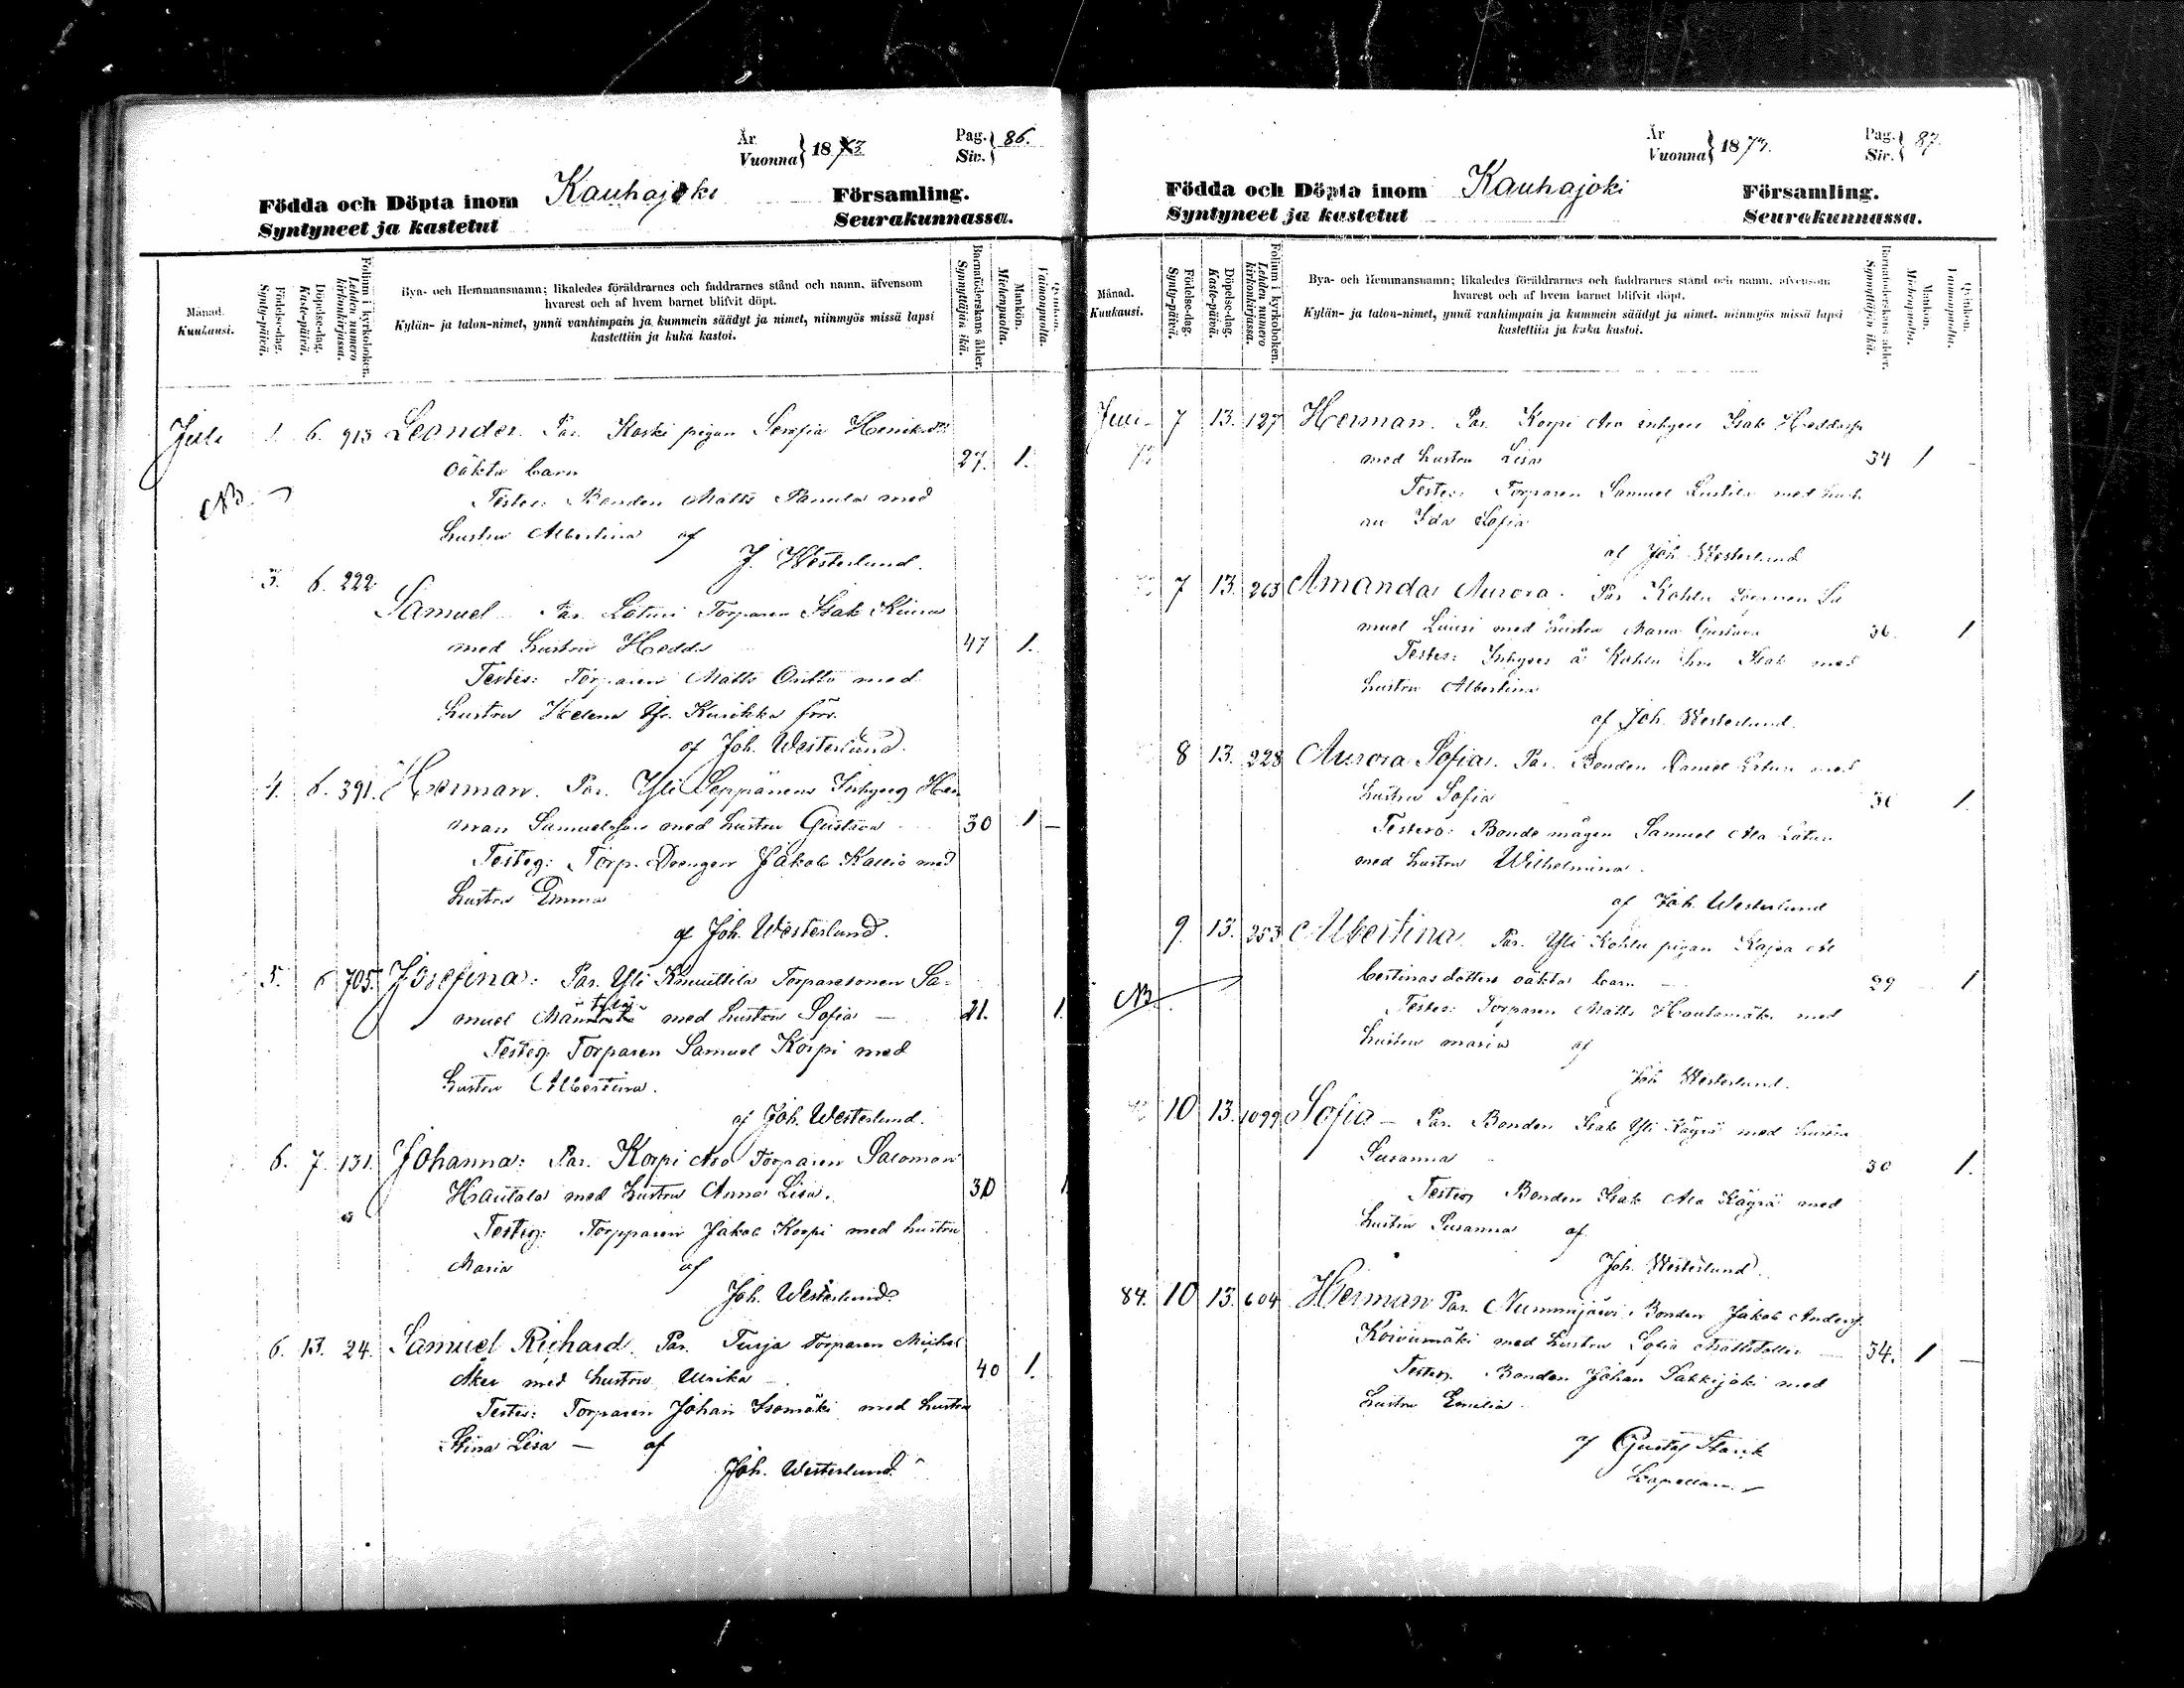 År
Vuonna } 1873
Pag.
Siv. } 86.
Födda och Döpta inom Kauhajoki Församling.
Syntyneet ja kastetut Seurakunnassa.
Månad.
Kuukausi.
Födelse-dag.
Synty-päivä.
Döpelse-dag.
Kaste-päivä.
Folium i kyrkoboken.
Lehden numero
kirkonkirjassa.
Bya- och Hemmansnamn; likaledes föräldrarnes och faddrarnes stånd och namn, äfvensom
hvarest och af hvem barnet blifvit döpt.
Kylän- ja talon-nimet, ynnä vanhimpain ja kummein säädyt ja nimet, niinmyös missä lapsi
kastettiin ja kuka kastoi.
Barnaföderskans ålder.
Synnyttäjän ikä.
Mankön.
Miehenpuolia.
Qvinkön.
Vaimonpuolia.
Juli 1. 6. 913 Leander. Par. Koski pigan Serafia Henriksdr
oäkta barn 27. 1.
NB.
Testes: Bonden Matts Panula med
hustru Albertina af
J. Westerlund.
3. 6. 222
Samuel Par. Luturi Torparen Isak
med hustru Hedda 47 1.
Testes: Torparen Matts med
hustru Helena fr. Kurikka förs.
af Joh. Westerlund.
4. 6. 391. Herman. Par. Yli Seppänens Inhyses Her
man Samuelsson med hustru Gustava 30 1 –
Testes: Torp. Drengen Jakob Kallio med
hustru Emma
af Joh. Westerlund.
5. 6 705. Josefina: Par. Yli Knuuttila Torparesonen Sa-
muel med hustru Sofia — 21. 1.
Testes: Torparen Samuel Korpi med
hustru Albertina.
af Joh. Westerlund.
6. 7. 131. Johanna: Par. Korpi Aro Torparen Salomon
Hautala med hustru Anna Lisa. 30 1
Testes: Torpparen Jakob Korpi med hustru
Maria af
Joh. Westerlund.
6. 13. 24. Samuel Richard. Par. Turja Torparen Michel
Åker med hustru Ulrika 40 1.
Testes: Torparen Johan Isomäki med hustru
Stina Lisa — af
Joh. Westerlund.
År
Vuonna } 1873.
Pag.
Siv. } 87.
Födda och Döpta inom Kauhajoki Församling.
Syntyneet ja kastetut Seurakunnassa.
Månad.
Kuukausi.
Födelse-dag.
Synty-päivä.
Döpelse-dag.
Kaste-päivä.
Folium i kyrkoboken.
Lehden numero
kirkonkirjassa.
Bya- och Hemmansnamn; likaledes föräldrarnes och faddrarnes stånd och namn, äfvensom
hvarest och af hvem barnet blifvit döpt.
Kylän- ja talon-nimet, ynnä vanhimpain ja kummein säädyt ja nimet, niinmyös missä lapsi
kastettiin ja kuka kastoi.
Barnaföderskans ålder.
Synnyttäjän ikä.
Mankön.
Miehenpuolia.
Qvinkön.
Vaimonpuolia.
Juli 7 13. 127 Herman. Par. Korpi Aro inhyses Isak
med hustru Lisa 34 1 –
Testes: Torparen Samuel Luttila med hust
ru Ida Sofia
af Joh Westerlund
7 13. 263 Amanda Aurora. Par Kohlu Sa
muel med hustru Maria Gustava 36. 1
Testes: Inhyses å Kohlu Isak med
hustru Albertina
af Joh. Westerlund.
8 13. 228 Aurora Sofia. Par. Bonden Daniel med
hustru Sofia 1
Testes: Bonde mågen Samuel Ala Luturi
med hustru Wilhelmina.
af Joh. Westerlund
9. 13. 253 Albertina Par. Yli Kohlu pigan Kajsa Al
bertinasdotters oäkta barn 29 1
NB.
Testes: Torparen Matts Hautamäki med
hustru Maria af
Joh Westerlund.
10 13. 1099 Sofia – Par. Bonden Isak Yli Käyrä med hustru
Susanna 30 1.
Testes Bonden Isak Ala Käyrä med
hustru Susanna af
Joh. Westerlund.
84. 10 13. 604 Herman Par. Nummijärvi. Bonden Jakob Andersf.
Koivumäki med hustru Sofia Mattsdotter — 34. 1 –
Testes. Bonden Johan Säkkijoki med
hustru Emilia
af Gustaf Starck
Kapellan.